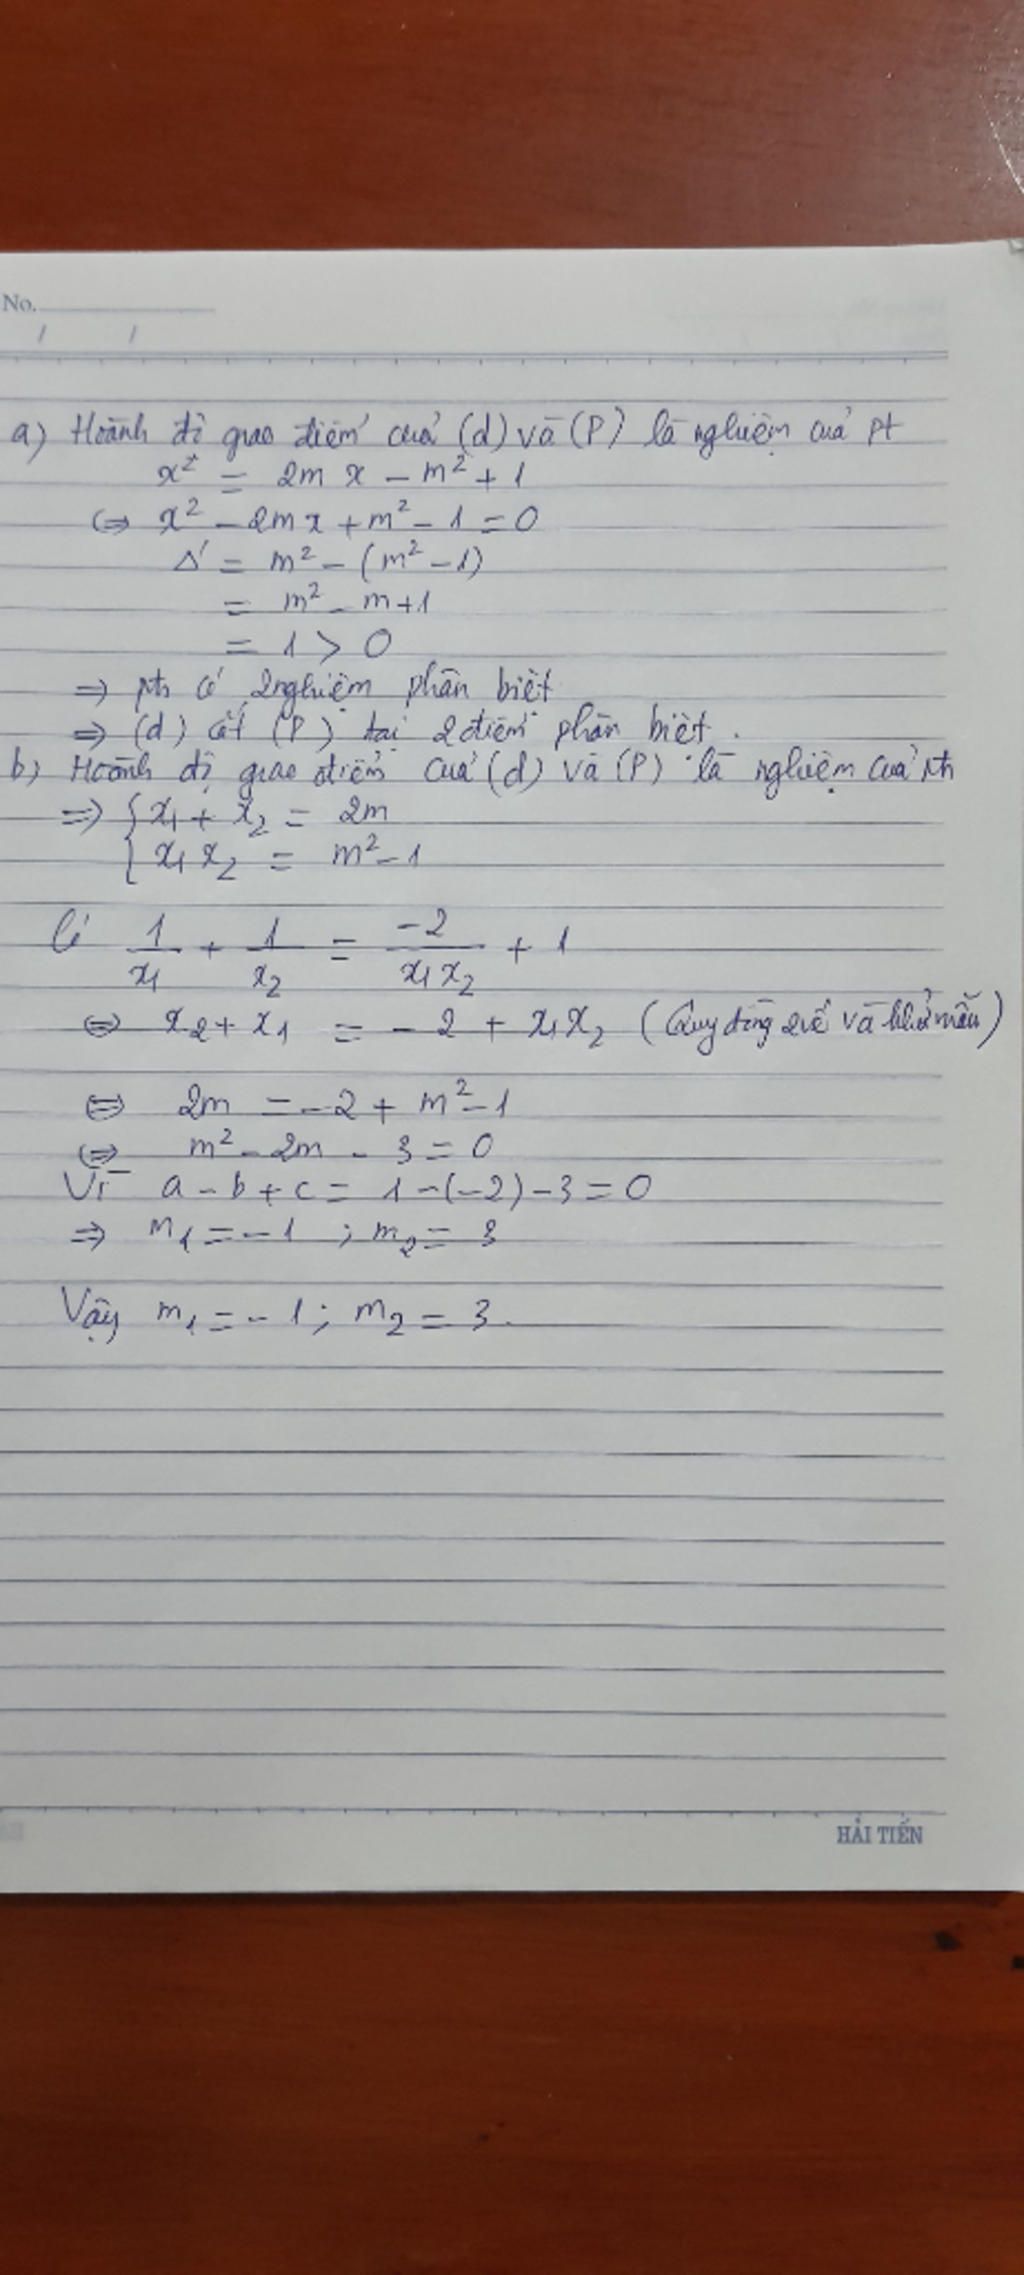 No.
/ /
a) Hoành độ giao điểm của (d) và (P) là nghiệm của pt
x² = 2m x - m² + 1
⇔ x² - 2mx + m² - 1 = 0
Δ' = m² - (m² - 1)
= m² - m + 1
= 1 > 0
⇒ pth có 2 nghiệm phân biệt
⇒ (d) cắt (P) tại 2 điểm phân biệt.
b) Hoành độ giao điểm của (d) và (P) là nghiệm của pth
⇒ { x₁ + x₂ = 2m
{ x₁ x₂ = m² - 1
Có 1/x₁ + 1/x₂ = -2/x₁x₂ + 1
⇔ x₂ + x₁ = - 2 + x₁x₂ (Quy đồng 2 vế và khử mẫu)
⇔ 2m = -2 + m² - 1
⇔ m² - 2m - 3 = 0
Vì a - b + c = 1 - (-2) - 3 = 0
⇒ m₁ = -1 ; m₂ = 3
Vậy m₁ = - 1 ; m₂ = 3.
HẢI TIẾN